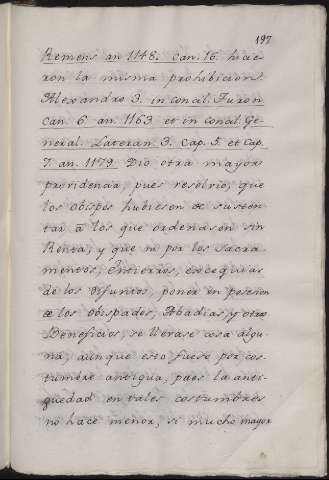 197
Remens an 1148. can. 16. hicie
ron la misma prohibicion.
Alexandro 3. in concil. Turon
can. 6 an 1163 et in concil Ge-
neral. Lateran. 3. Cap. 5. et Cap.
7. an. 1179. Dio otra mayor
providencia, pues resolvio, que
los obispos hubiesen de susten-
tar à los que ordenasen sin
Renta, y que ni por los Sacra-
mentos, Entierros, exequias
de los difuntos, poner en posesion
de los obispados, Abadias, y otros
Beneficios, se llevase cosa algu-
na, aunque esto fuese por cos-
tumbre antigua, pues la anti-
guedad en tales costumbres
no hace menor, si mucho mayor